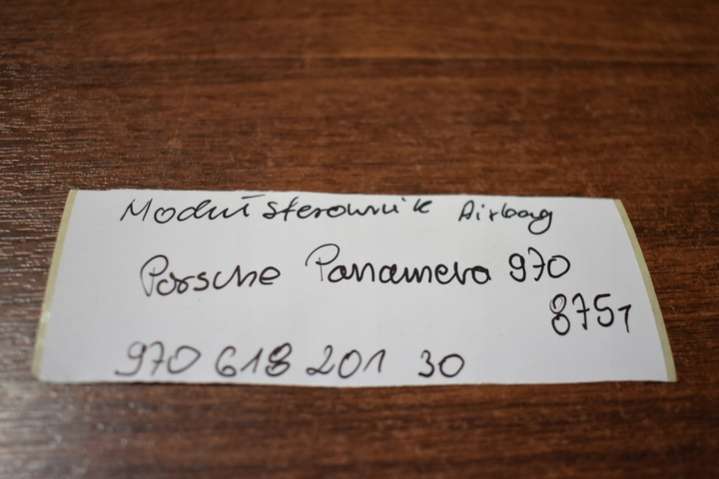 Moduł sterownik Airbag
Porsche Panamera 970
8751
970 618 201 30